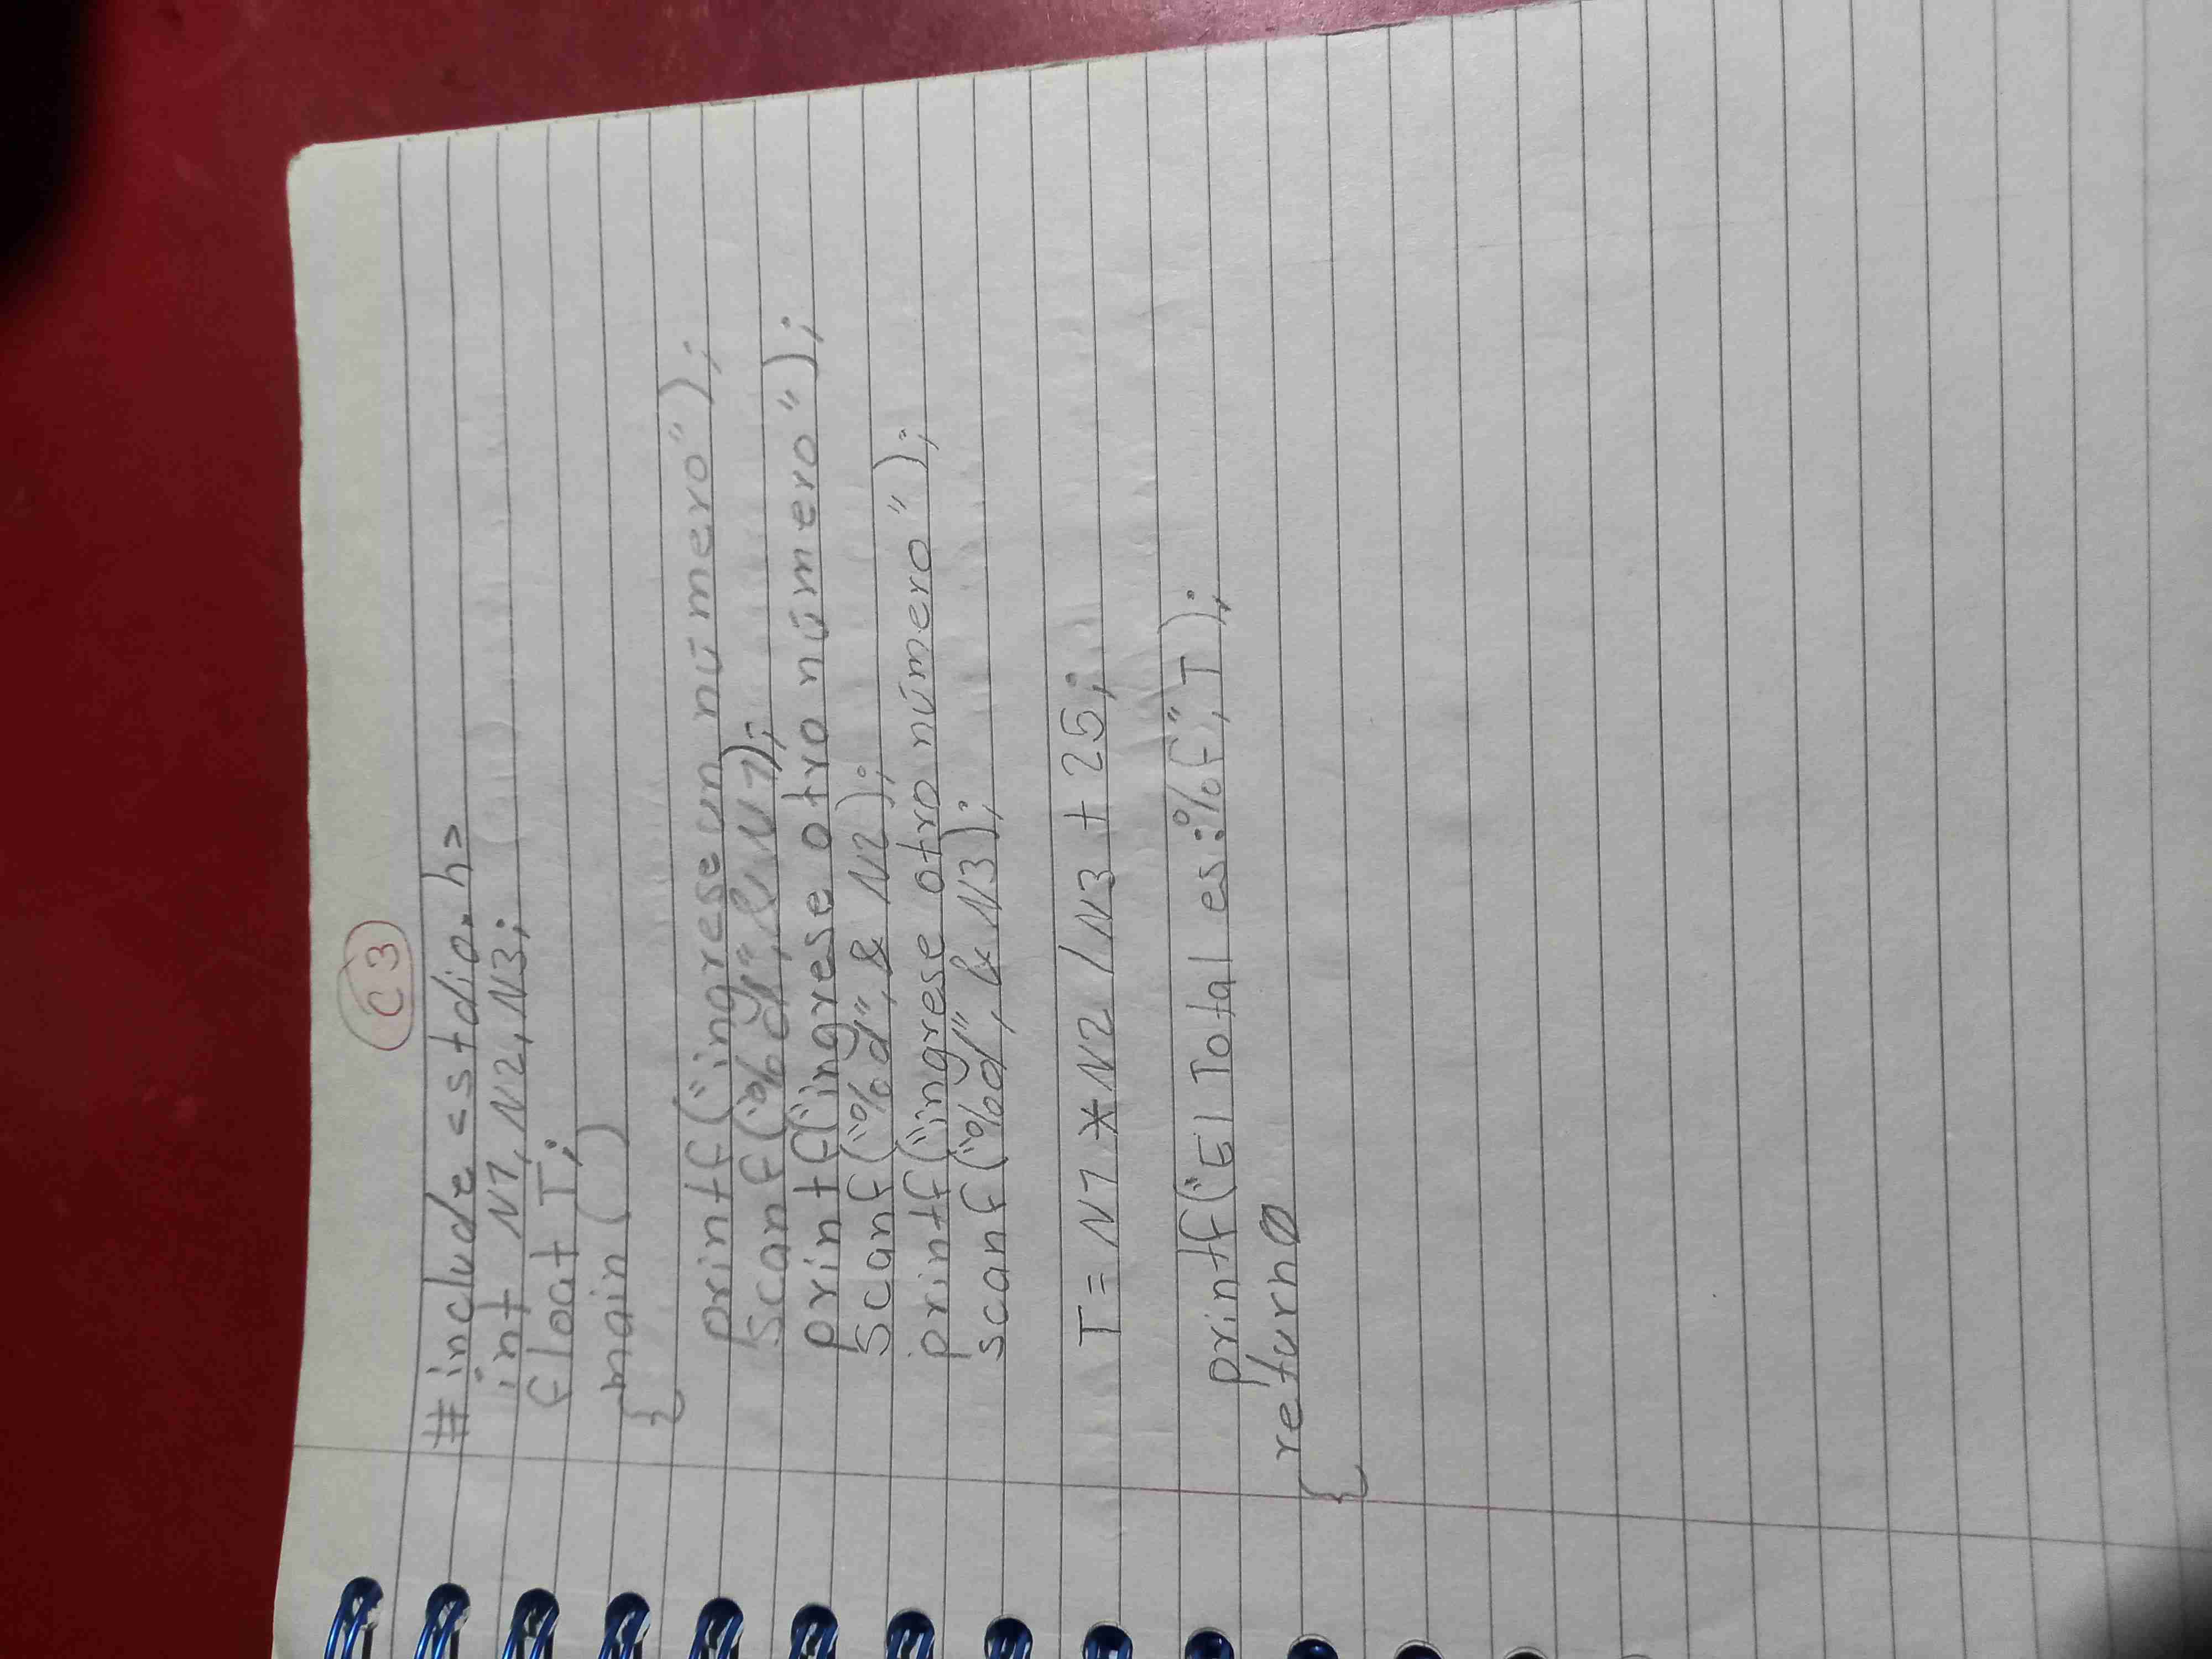 C3
#include <stdio.h>
int N1, N2, N3;
float T;
main ( )
{
printf("ingrese un número");
Scanf("%d", & N1);
printf("ingrese otro número");
Scanf("%d", & N2);
printf("ingrese otro número");
scanf("%d", & N3);
T = N1 * N2 / N3 + 25;
printf("El Total es: %f", T);
return 0
}